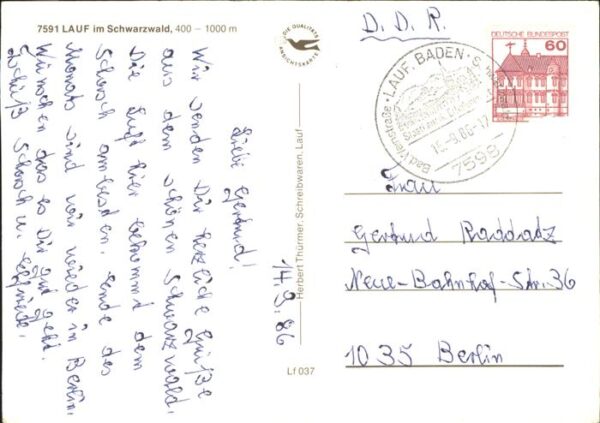 7591 LAUF im Schwarzwald, 400 – 1000 m
14.9.86
Liebe Gertrud!
Wir senden Dir herzliche Grüße
aus dem schönen Schwarzwald.
Die Luft hier bekommt dem
Schorsch am besten. Ende des
Monats sind wir wieder in Berlin.
Wünschen das es Dir gut geht.
Tschüß Schorsch u. Elfriede.
DIE QUALITÄTS
ANSICHTSKARTE
Herbert Thürmer, Schreibwaren, Lauf
Lf 037
D.D.R.
DEUTSCHE BUNDESPOST
60
LAUF, BADEN
Bad. Weinstraße
7598
Frau
Gertrud Raddatz
Neue-Bahnhof-Str. 36
1035 Berlin